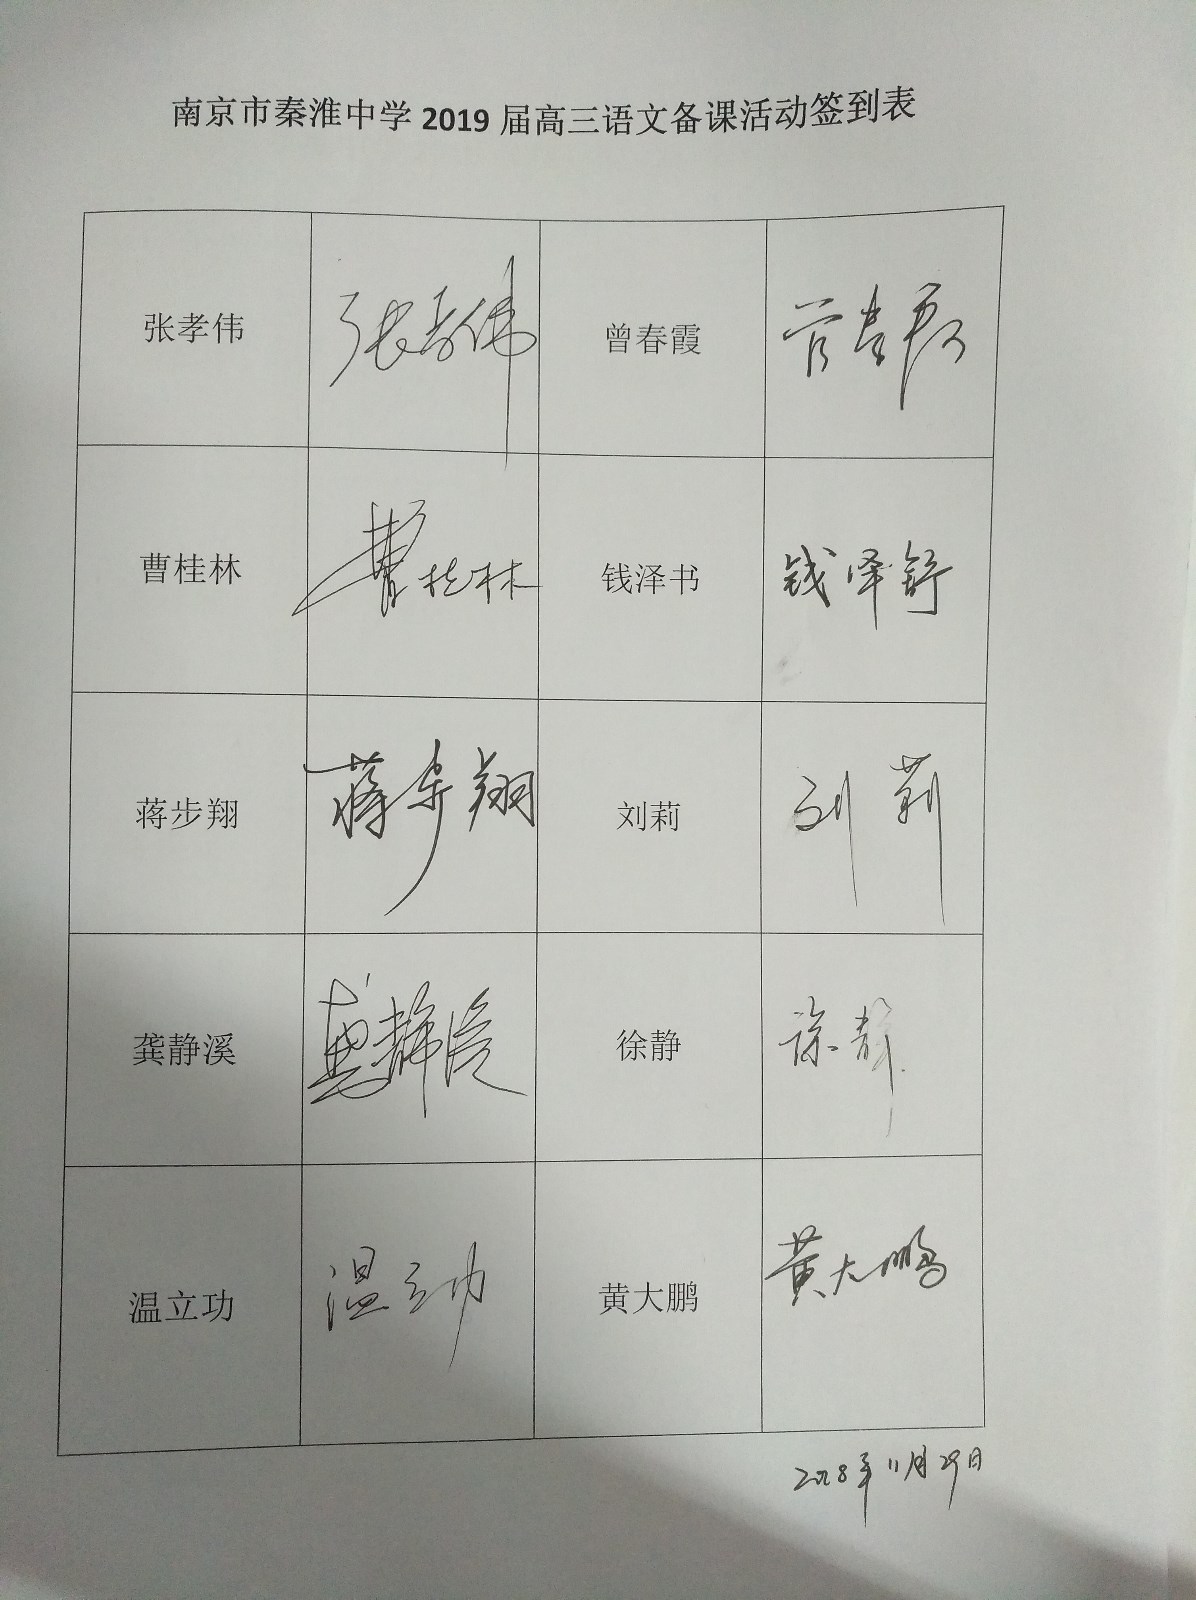 南京市秦淮中学 2019 届高三语文备课活动签到表
张孝伟 张孝伟 曾春霞 曾春霞
曹桂林 曹桂林 钱泽书 钱泽舒
蒋步翔 蒋步翔 刘莉 刘莉
龚静溪 龚静溪 徐静 徐静
温立功 温立功 黄大鹏 黄大鹏
2018年11月29日